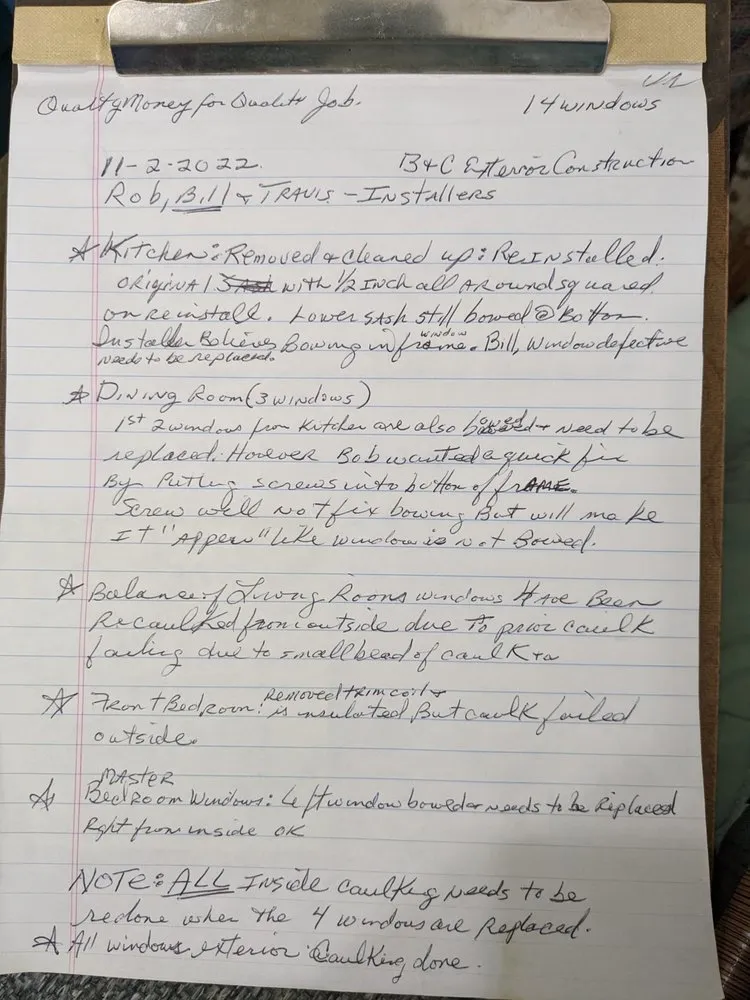 Quality Money for Quality Job. 14 windows
11-2-2022. B+C Exterior Construction
Rob, Bill & TRAVIS - Installers
Kitchen: Removed & cleaned up: Reinstalled.
ORIGINAl with 1/2 Inch all Around squared
on reinstall. Lower sash still bowed @ Bottom.
Installer Believes Bowing in window frame. Bill, Window defective
needs to be replaced.
Dining Room (3 windows)
1st 2 windows from Kitchen are also bowed + need to be
replaced. However Bob wanted a quick fix
By Putting screws into bottom of fRAME.
Screw will not fix bowing But will make
It "Appear" like window is not Bowed.
Balance of Living Rooms windows Have Been
Recaulked from outside due To prior caulk
failing due to small bead of caulk
Front Bedroom: Removed trim coil +
is insulated But caulk failed
outside.
MASTER
Bedroom Windows: Left window bowed + needs to be Replaced
Right from inside OK
NOTE: ALL Inside caulking needs to be
redone when the 4 windows are Replaced.
All windows exterior Caulking done.